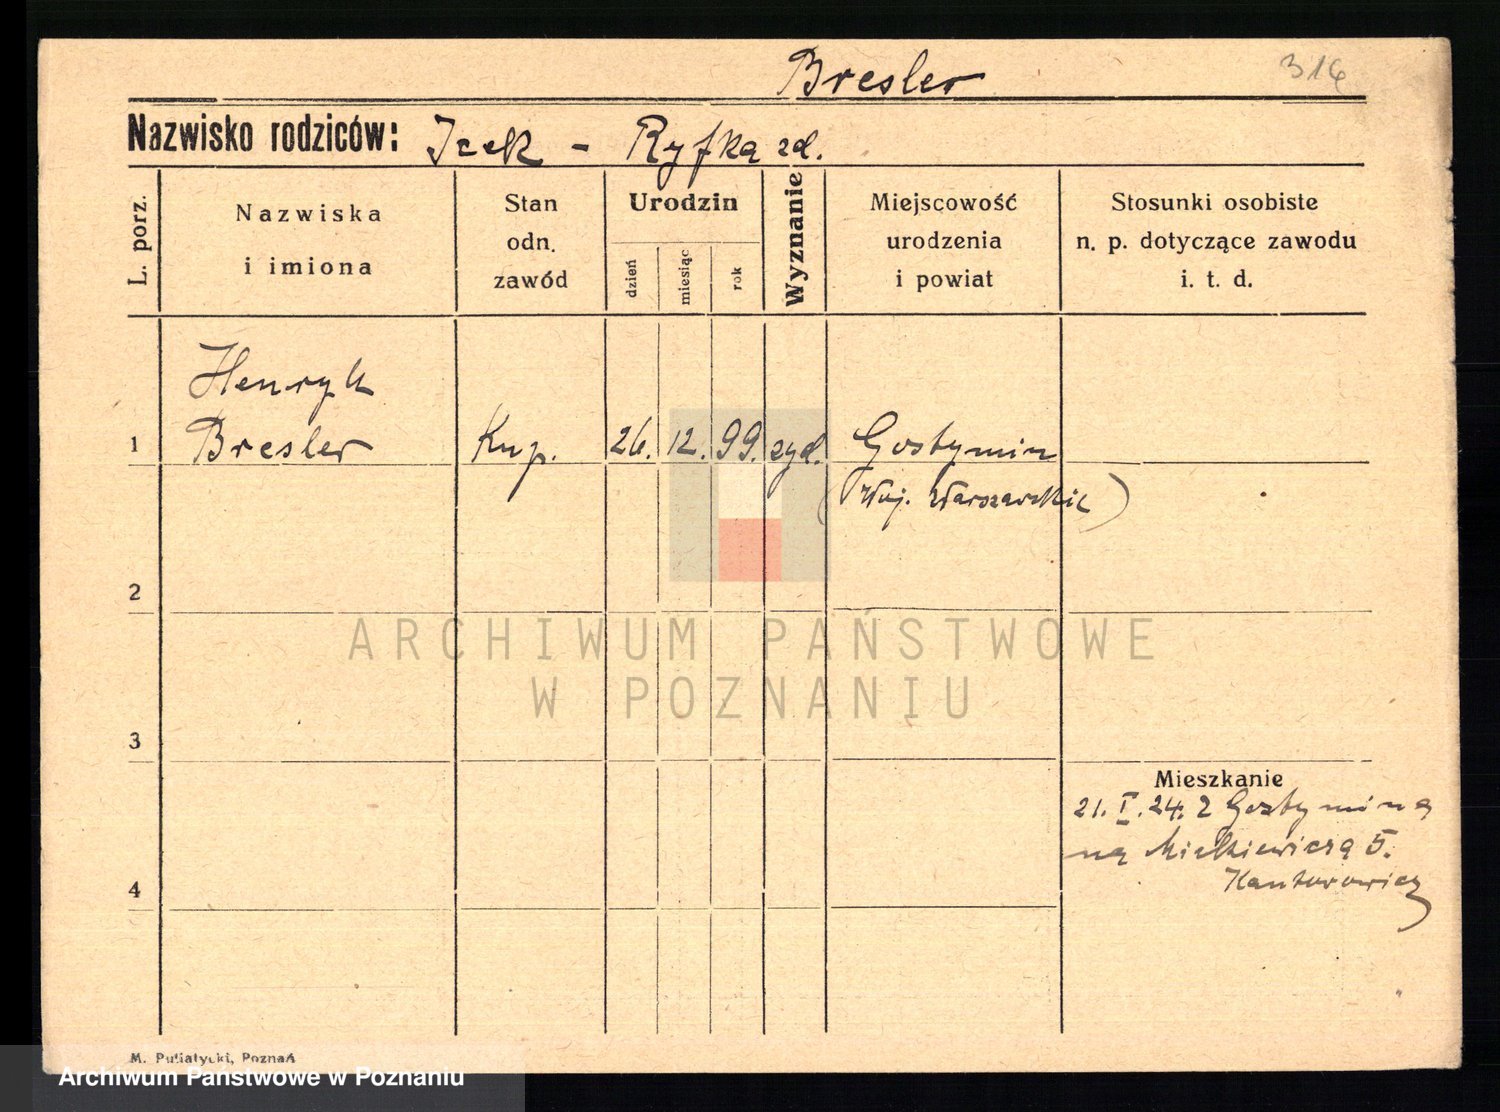 Bresler
316
Nazwisko rodziców: Icek - Ryfka zd.
L. porz.
Nazwiska
i imiona
Stan
odn.
zawód
Urodzin
dzień
miesiąc
rok
Wyznanie
Miejscowość
urodzenia
i powiat
Stosunki osobiste
n. p. dotyczące zawodu
i. t. d.
Henryk
1 Bresler Kup. 26. 12. 99. żyd. Gostymin
(Woj. Warszawskie)
2
ARCHIWUM PAŃSTWOWE
W POZNANIU
3
Mieszkanie
21. I. 24. z Gostymina
na Mickiewicza 5.
4
Kantorowicz
M. Putiatycki, Poznań
Archiwum Państwowe w Poznaniu